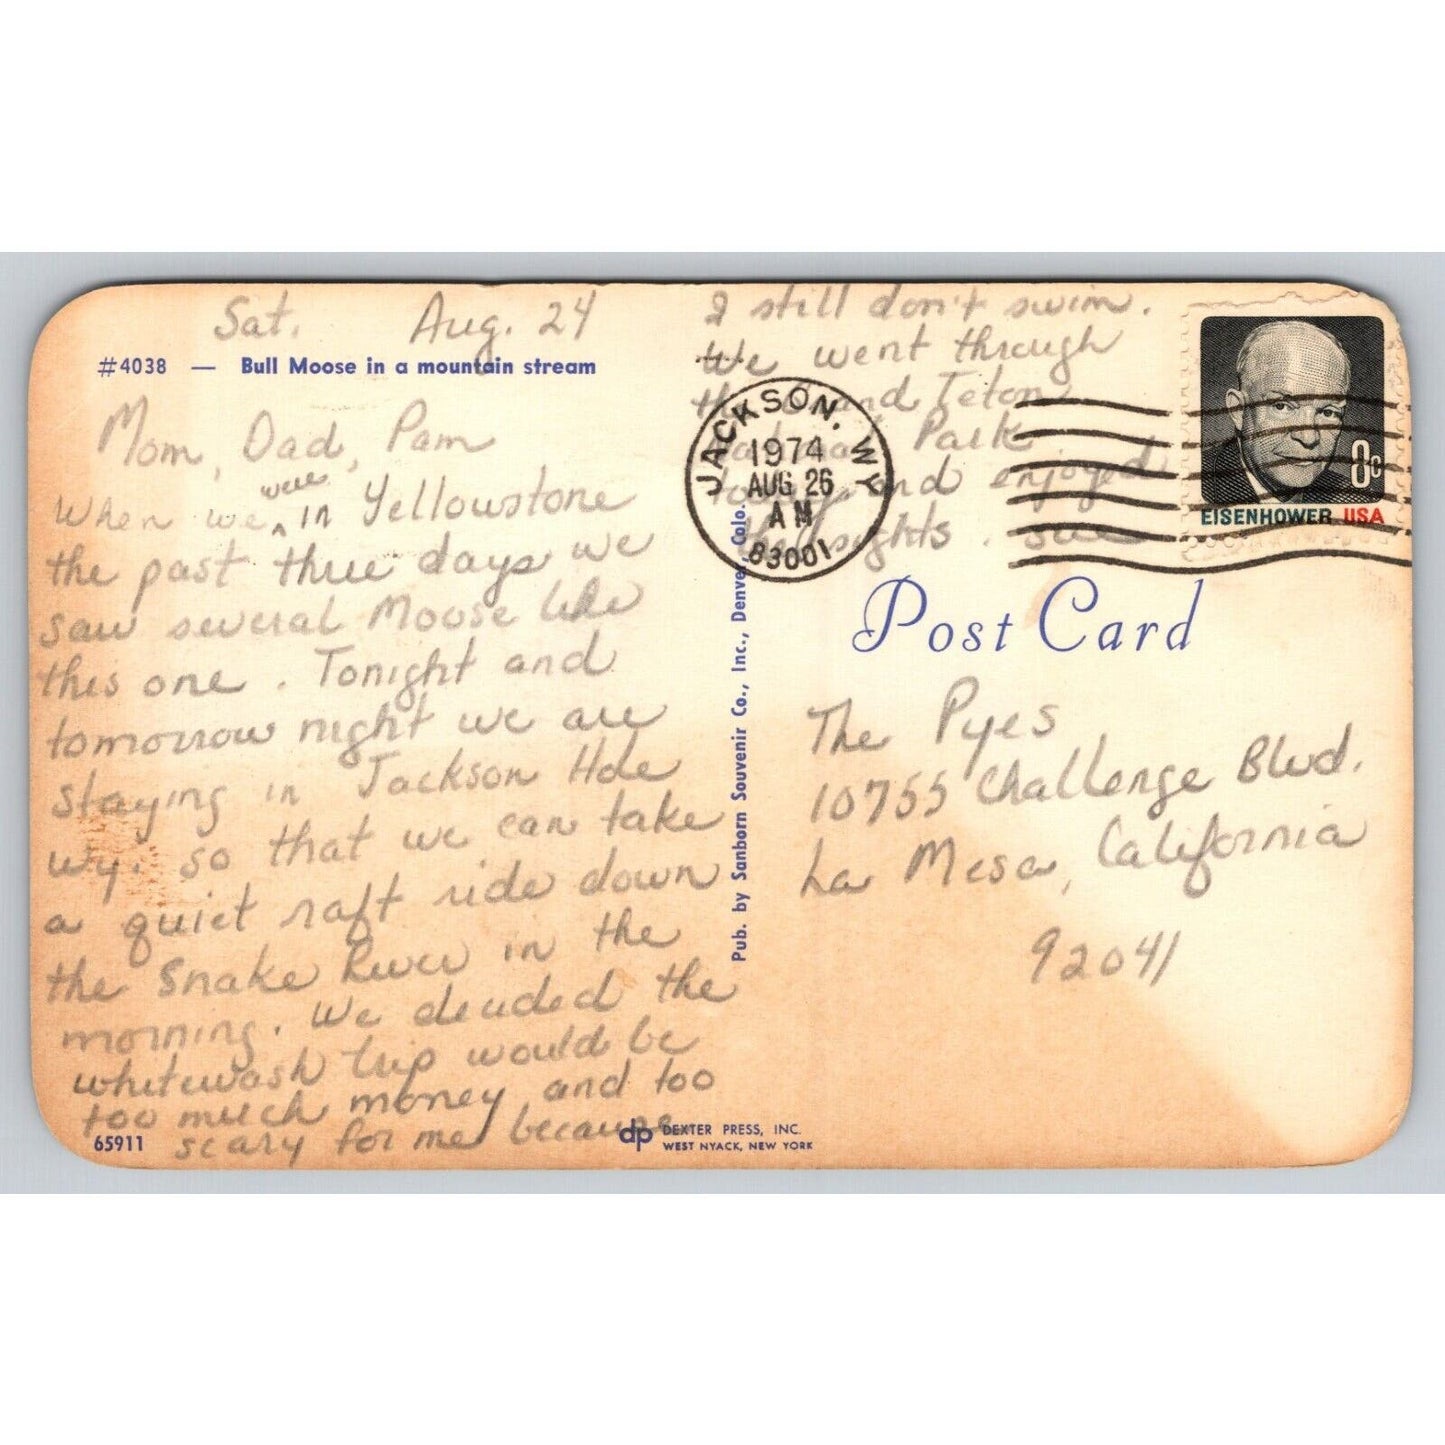 Sat. Aug. 24
#4038 — Bull Moose in a mountain stream
Mom, Dad, Pam
were
When we ^ in Yellowstone
the past three days we
saw several Moose like
this one. Tonight and
tomorrow night we are
staying in Jackson Hole
Wy. so that we can take
a quiet raft ride down
the Snake River in the
morning. We decided the
whitewash trip would be
too much money and too
scary for me because
65911
dp DEXTER PRESS, INC.
WEST NYACK, NEW YORK
Pub. by Sanborn Souvenir Co., Inc., Denver, Colo.
I still don't swim.
We went through
the Grand Teton
National Park
today and enjoyed
the sights. Sue
JACKSON, WY
1974
AUG 26
AM
83001
8c
EISENHOWER USA
Post Card
The Pyes
10755 Challenge Blvd.
La Mesa, California
92041